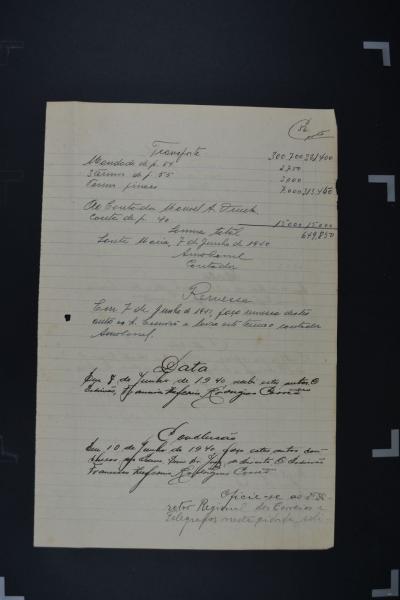 Transporte 300.700 321/400
Mandado de p. 54 2.750
3 termos de p. 55 3.000
Termos finaes 7.000 313.450
Ao Contador Manoel A.
Conta de p. 40 15.000 15.000
Somma total 649.850
Santa Maria, 7 de Junho de 1940
Contador
Remessa
Em 7 de Junho de 1940, faço remessa destes
autos ao Sr. Escrivão e lavro este termo. Contador
Data
Em 8 de Junho de 1940 recebi estes autos. O
Escrivão, Francisco Rodrigues Corrêa
Conclusão
Em 10 de Junho de 1940 faço estes autos con-
clusos ao Exmo. Snr. Dr. Juiz de Direito. O Escrivão
Francisco Rodrigues Corrêa
Oficie-se ao Sr. Di
retor Regional dos Correios e
Telegrafos nesta cidade, soli